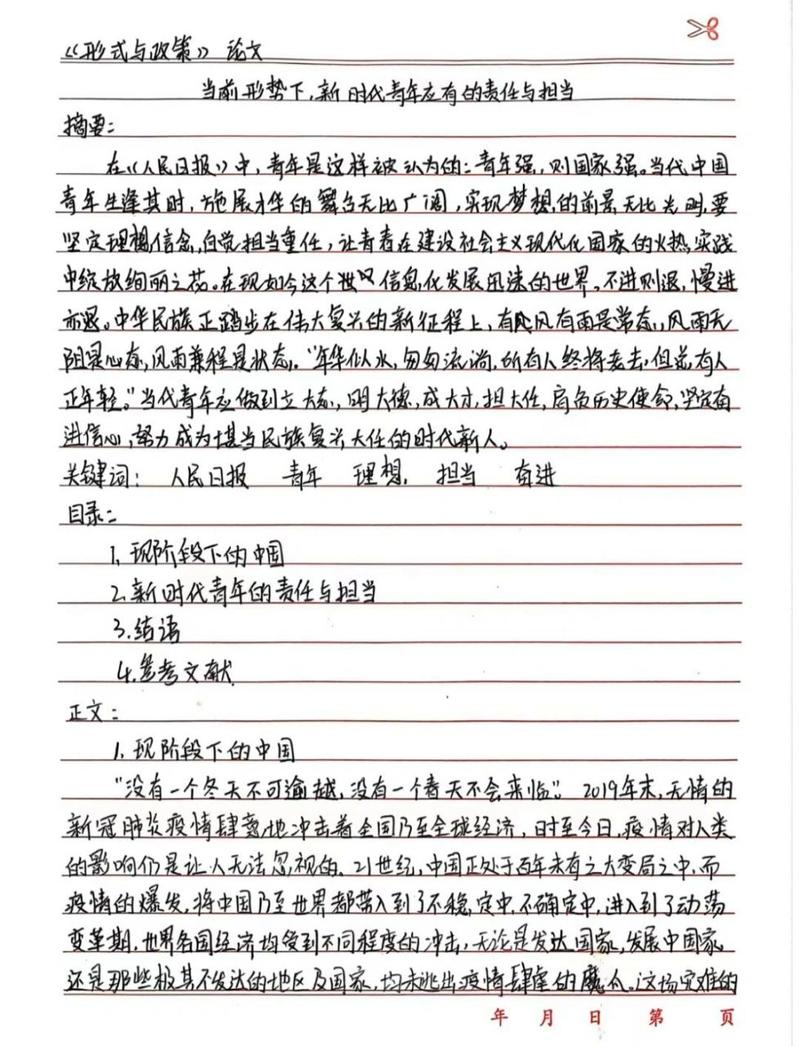 《形式与政策》论文
当前形势下,新时代青年应有的责任与担当
摘要:
在《人民日报》中,青年是这样被认为的:青年强,则国家强。当代中国
青年生逢其时,施展才华的舞台无比广阔,实现梦想的前景无比光明,要
坚定理想信念,自觉担当重任,让青春在建设社会主义现代化国家的火热实践
中绽放绚丽之花。在现如今这个世界信息化发展迅速的世界,不进则退,慢进
亦退。中华民族正踏步在伟大复兴的新征程上,有风有雨是常态,风雨无
阻是心态,风雨兼程是状态。"年华似水,匆匆流淌,所有人终将老去,但总有人
正年轻。"当代青年应做到立大志,明大德,成大才,担大任,肩负历史使命,坚定奋
进信心,努力成为堪当民族复兴大任的时代新人。
关键词: 人民日报 青年 理想 担当 奋进
目录:
1.现阶段下的中国
2.新时代青年的责任与担当
3.结语
4.参考文献
正文:
1.现阶段下的中国
"没有一个冬天不可逾越,没有一个春天不会来临"。2019年末,无情的
新冠肺炎疫情肆意地冲击着全国乃至全球经济,时至今日,疫情对人类
的影响仍是让人无法忽视的。21世纪,中国正处于百年未有之大变局之中,而
疫情的爆发,将中国乃至世界都带入到了不稳定中,不确定中,进入到了动荡
变革期,世界各国经济均受到不同程度的冲击,无论是发达国家,发展中国家
还是那些极其不发达的地区及国家,均未逃出疫情肆虐的魔爪。这场灾难的
年 月 日 第 页